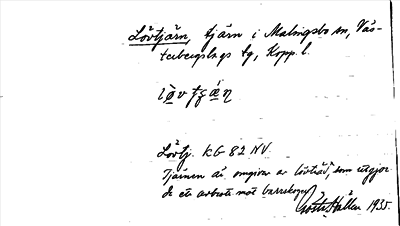 Lövtjärn, tjärn i Malingsbo sn, Väs-
terbergslags tg, Kopp. l.
Lövtj. KG 82 NV.
Tjärnen är omgiven av lövträd, som utgör
de ett avbrott mot barrskogen.
Gösta Hallen 1935.